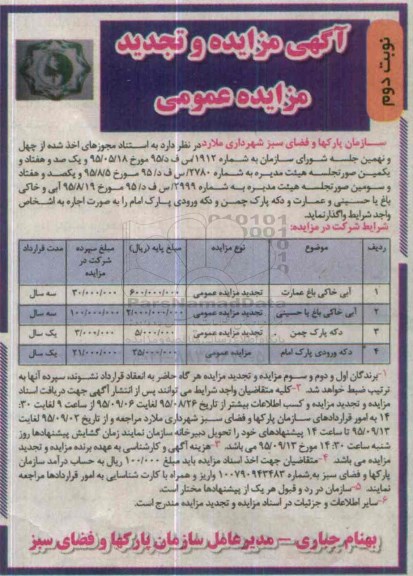 نوبت دوم
آگهی مزایده و تجدید
مزایده عمومی
سازمان پارکها و فضای سبز شهرداری ملارد در نظر دارد به استناد مجوزهای اخذ شده از چهل
و نهمین جلسه شورای سازمان به شماره ۱۹۱۲/س ف د/۹۵ مورخ ۹۵/۰۵/۱۸ و یک صد و هفتاد و
یکمین صورتجلسه هیئت مدیره به شماره ۲۷۸۰/س ف د/۹۵ مورخ ۹۵/۸/۵ و یکصد و هفتاد
و سومین صورتجلسه هیئت مدیره به شماره ۲۹۹۹/س ف د/۹۵ مورخ ۹۵/۸/۱۹ آبی و خاکی
باغ یا حسینی و عمارت و دکه پارک چمن و دکه ورودی پارک امام را به صورت اجاره به اشخاص
واجد شرایط واگذار نماید.
شرایط شرکت در مزایده:
ردیف موضوع نوع مزایده مبلغ پایه (ریال) مبلغ سپرده شرکت در مزایده مدت قرارداد
۱ آبی خاکی باغ عمارت تجدید مزایده عمومی ۶۰۰/۰۰۰/۰۰۰ ۳۰/۰۰۰/۰۰۰ سه سال
۲ آبی خاکی باغ یا حسینی تجدید مزایده عمومی ۲/۰۰۰/۰۰۰/۰۰۰ ۱۰۰/۰۰۰/۰۰۰ سه سال
۳ دکه پارک چمن تجدید مزایده عمومی ۵/۰۰۰/۰۰۰ ۳/۰۰۰/۰۰۰ یک سال
۴ دکه ورودی پارک امام مزایده عمومی ۳۵/۰۰۰/۰۰۰ ۲۱/۰۰۰/۰۰۰ یک سال
۱-برندگان اول و دوم و سوم مزایده و تجدید مزایده هر گاه حاضر به انعقاد قرارداد نشوند، سپرده آنها به
ترتیب ضبط خواهد شد. ۲-کلیه متقاضیان واجد شرایط می توانند پس از انتشار آگهی جهت دریافت اسناد
مزایده و تجدید مزایده و کسب اطلاعات بیشتر از تاریخ ۹۵/۰۸/۲۶ لغایت ۹۵/۰۹/۰۶ از ساعت ۹ لغایت ۳۰:
۱۴ به امور قراردادهای سازمان پارکها و فضای سبز شهرداری ملارد مراجعه و از تاریخ ۹۵/۰۹/۰۳ لغایت
۹۵/۰۹/۱۳ تا ساعت ۱۴ پیشنهادهای خود را تحویل دبیرخانه سازمان نمایند زمان گشایش پیشنهادها روز
شنبه ساعت ۱۴:۳۰ مورخ ۹۵/۰۹/۱۳ می باشد. ۳-هزینه آگهی و کارشناسی به عهده برنده مزایده و تجدید
مزایده می باشد. ۴-متقاضیان جهت اخذ اسناد مزایده باید مبلغ ۱۰۰/۰۰۰ ریال به حساب درآمد سازمان
پارکها و فضای سبز به شماره ۱۰۰۷۹۰۹۴۳۴۸۳ واریز و همراه با کارت شناسایی به امور قراردادها مراجعه
نمایند. ۵-سازمان در رد و قبول هر یک از پیشنهادها مختار است.
۶-سایر اطلاعات و جزئیات در اسناد مزایده و تجدید مزایده مندرج است.
بهنام جباری – مدیرعامل سازمان پارکها و فضای سبز